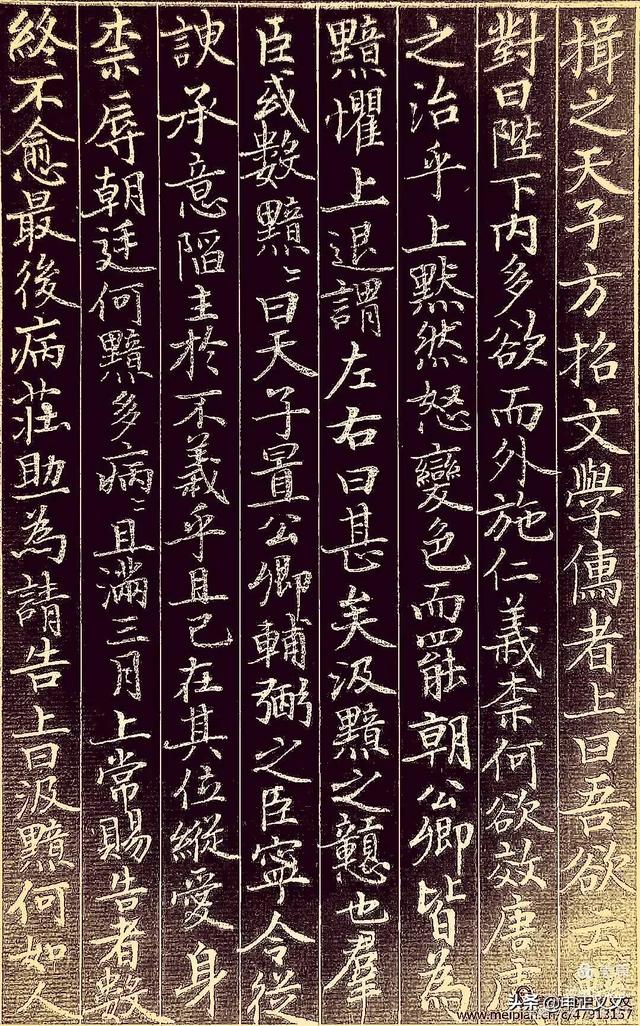 揖之天子方招文學儒者上曰吾欲云
對曰陛下內多欲而外施仁義柰何欲效唐虞
之治乎上默然怒變色而罷朝公卿皆為
黯懼上退謂左右曰甚矣汲黯之戇也羣
臣或數黯〻曰天子置公卿輔弼之臣寧令從
諛承意陷主於不義乎且已在其位縱愛身
柰辱朝廷何黯多病〻且滿三月上常賜告者數
終不愈最後病莊助為請告上曰汲黯何如人
头条
www.meipian.cn/c/47313157